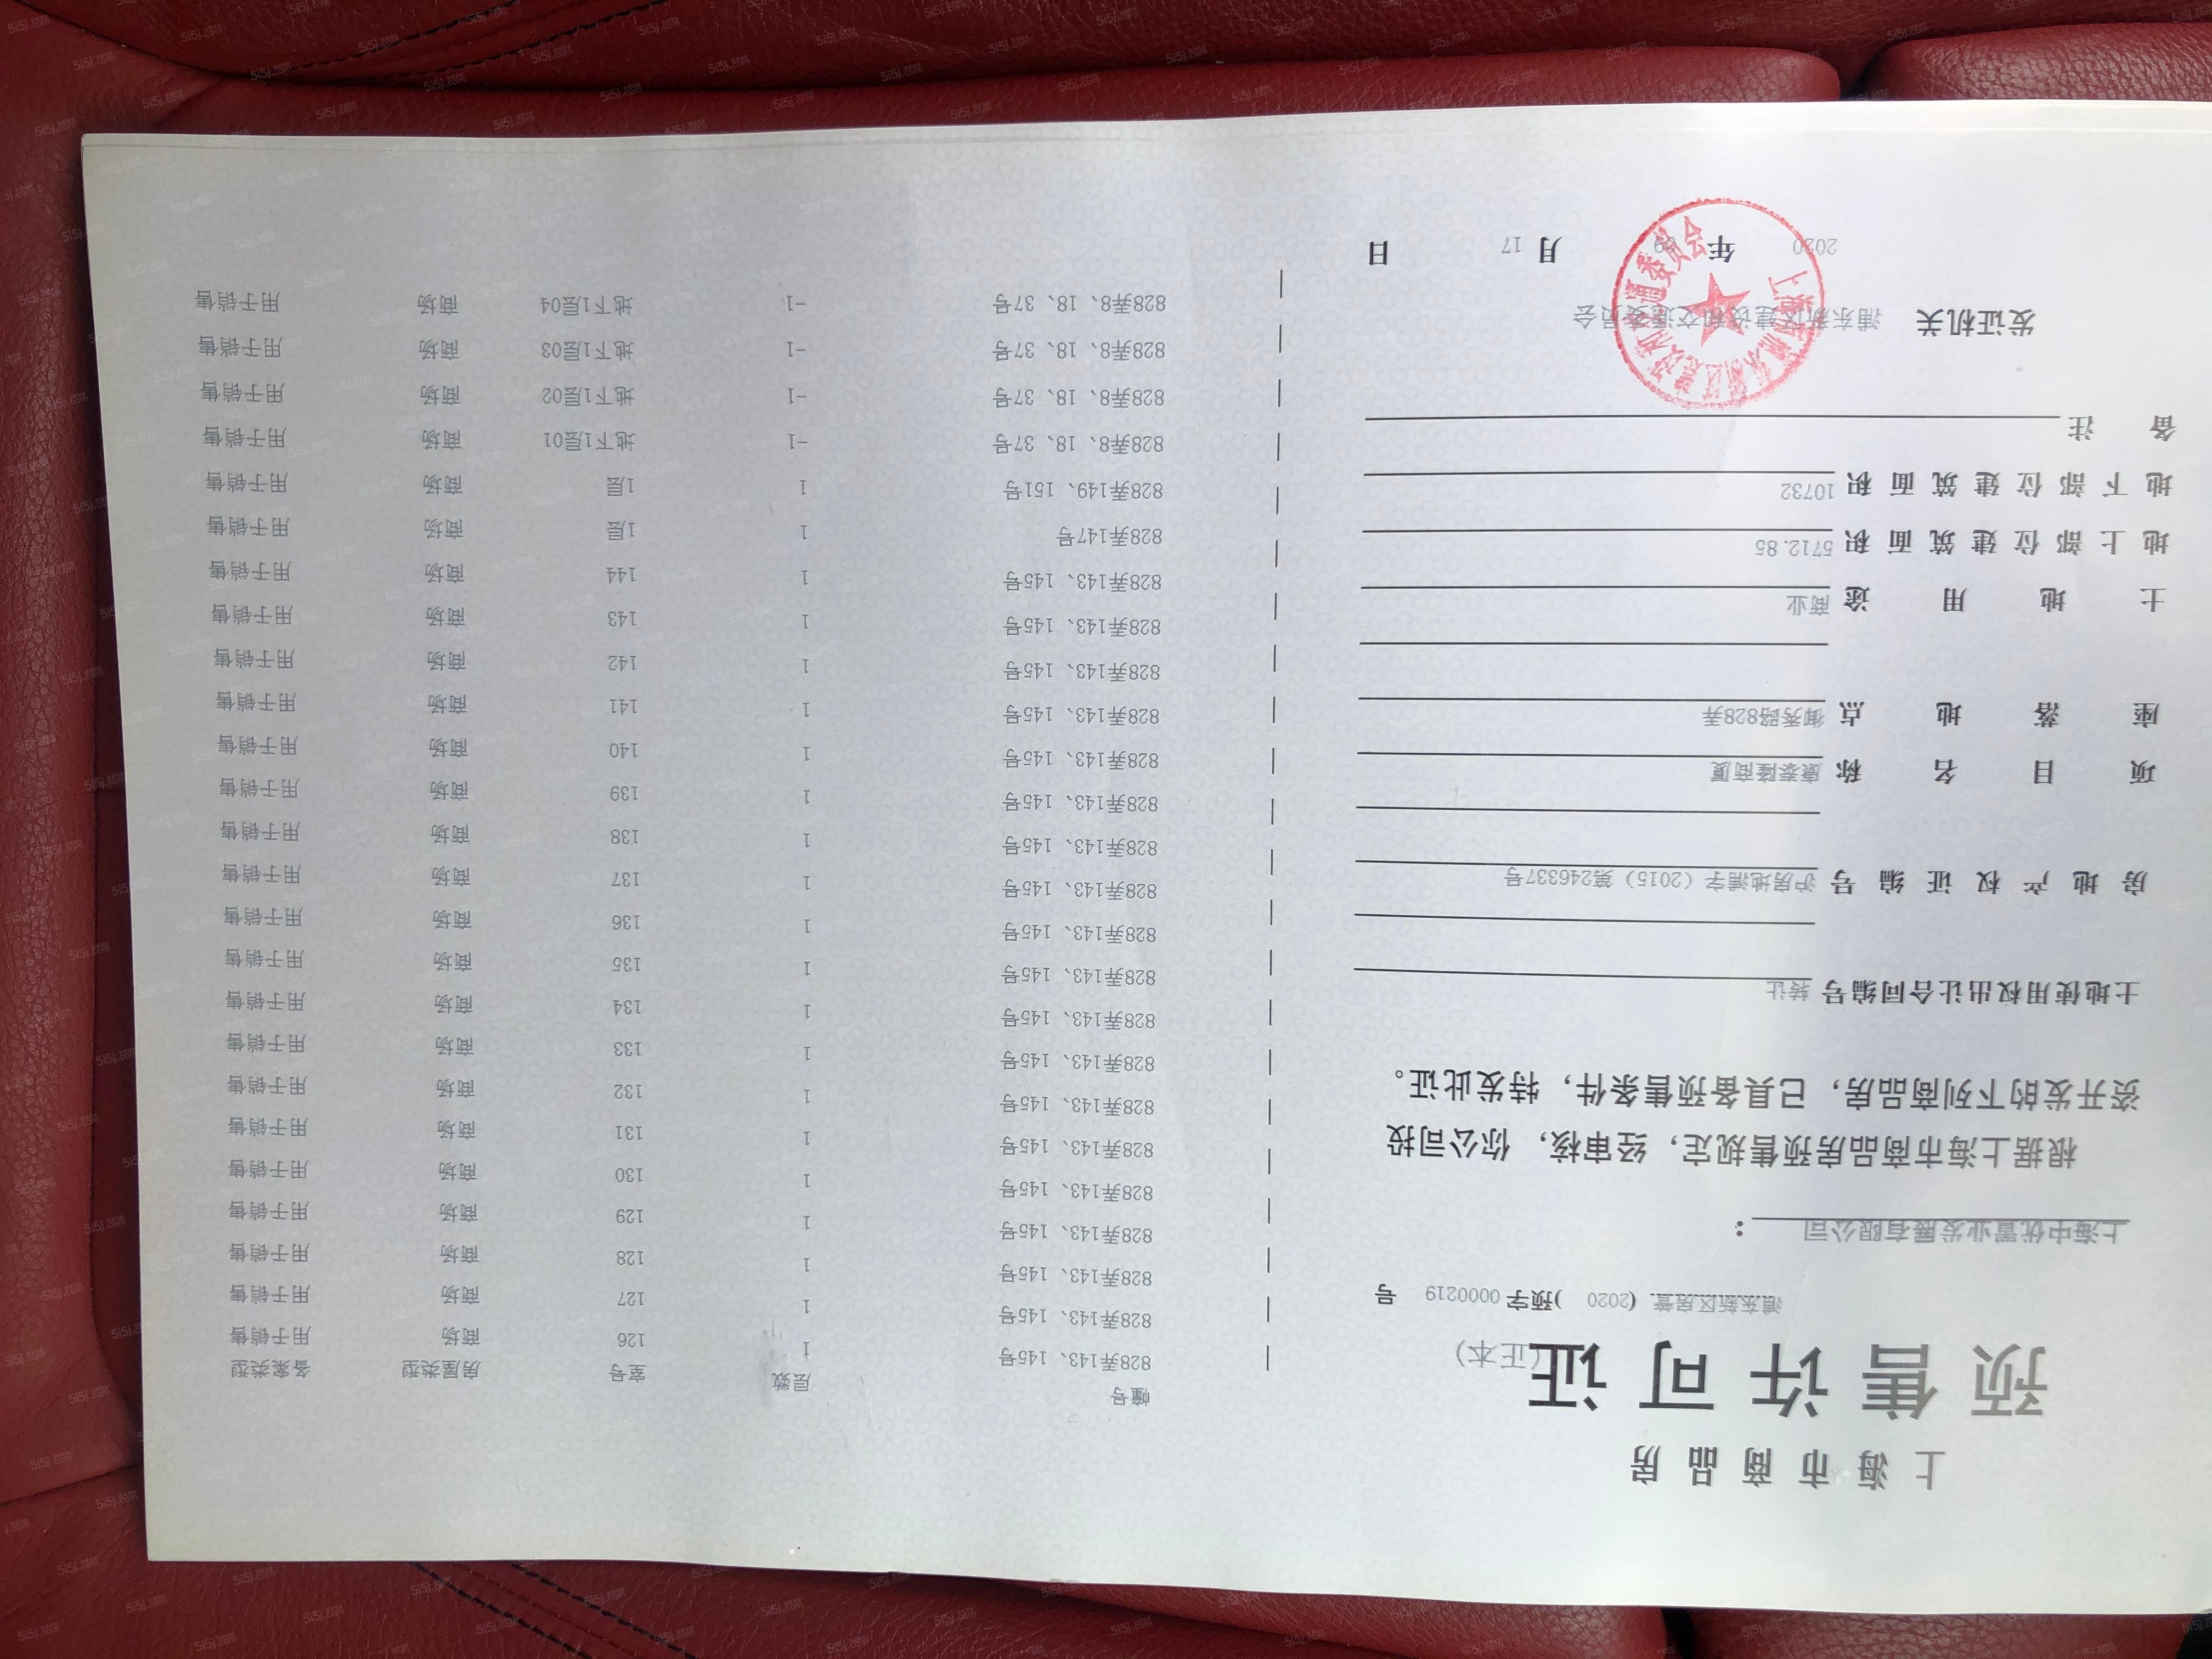 上海市商品房
预售许可证(正本)
浦东新区房管(2020)预字0000219号
上海中优置业发展有限公司：
根据上海市商品房预售规定，经审核，你公司投
资开发的下列商品房，已具备预售条件，特发此证。
土地使用权出让合同编号 转让
房地产权证编号 沪房地浦字（2015）第246337号
项目名称 康泰隆商厦
座落地点 御秀路828弄
土地用途 商业
地上部位建筑面积 5712.85
地下部位建筑面积 10732
备注
发证机关 浦东新区建设和交通委员会
2020年09月17日
上海市浦东新区建设和交通委员会
幢号 层数 室号 房屋类型 备案类型
828弄143、145号 1 126 商场 用于销售
828弄143、145号 1 127 商场 用于销售
828弄143、145号 1 128 商场 用于销售
828弄143、145号 1 129 商场 用于销售
828弄143、145号 1 130 商场 用于销售
828弄143、145号 1 131 商场 用于销售
828弄143、145号 1 132 商场 用于销售
828弄143、145号 1 133 商场 用于销售
828弄143、145号 1 134 商场 用于销售
828弄143、145号 1 135 商场 用于销售
828弄143、145号 1 136 商场 用于销售
828弄143、145号 1 137 商场 用于销售
828弄143、145号 1 138 商场 用于销售
828弄143、145号 1 139 商场 用于销售
828弄143、145号 1 140 商场 用于销售
828弄143、145号 1 141 商场 用于销售
828弄143、145号 1 142 商场 用于销售
828弄143、145号 1 143 商场 用于销售
828弄143、145号 1 144 商场 用于销售
828弄147号 1 1层 商场 用于销售
828弄149、151号 1 1层 商场 用于销售
828弄8、18、37号 -1 地下1层01 商场 用于销售
828弄8、18、37号 -1 地下1层02 商场 用于销售
828弄8、18、37号 -1 地下1层03 商场 用于销售
828弄8、18、37号 -1 地下1层04 商场 用于销售
5i5j.com